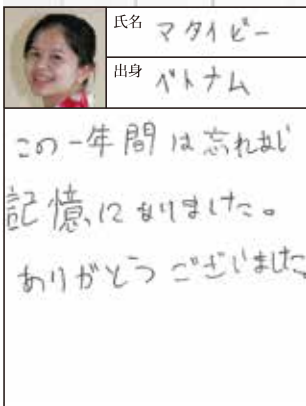 氏名 マタイビー
出身 ベトナム
この一年間は忘れまじ
記憶になりました。
ありがとうございました。